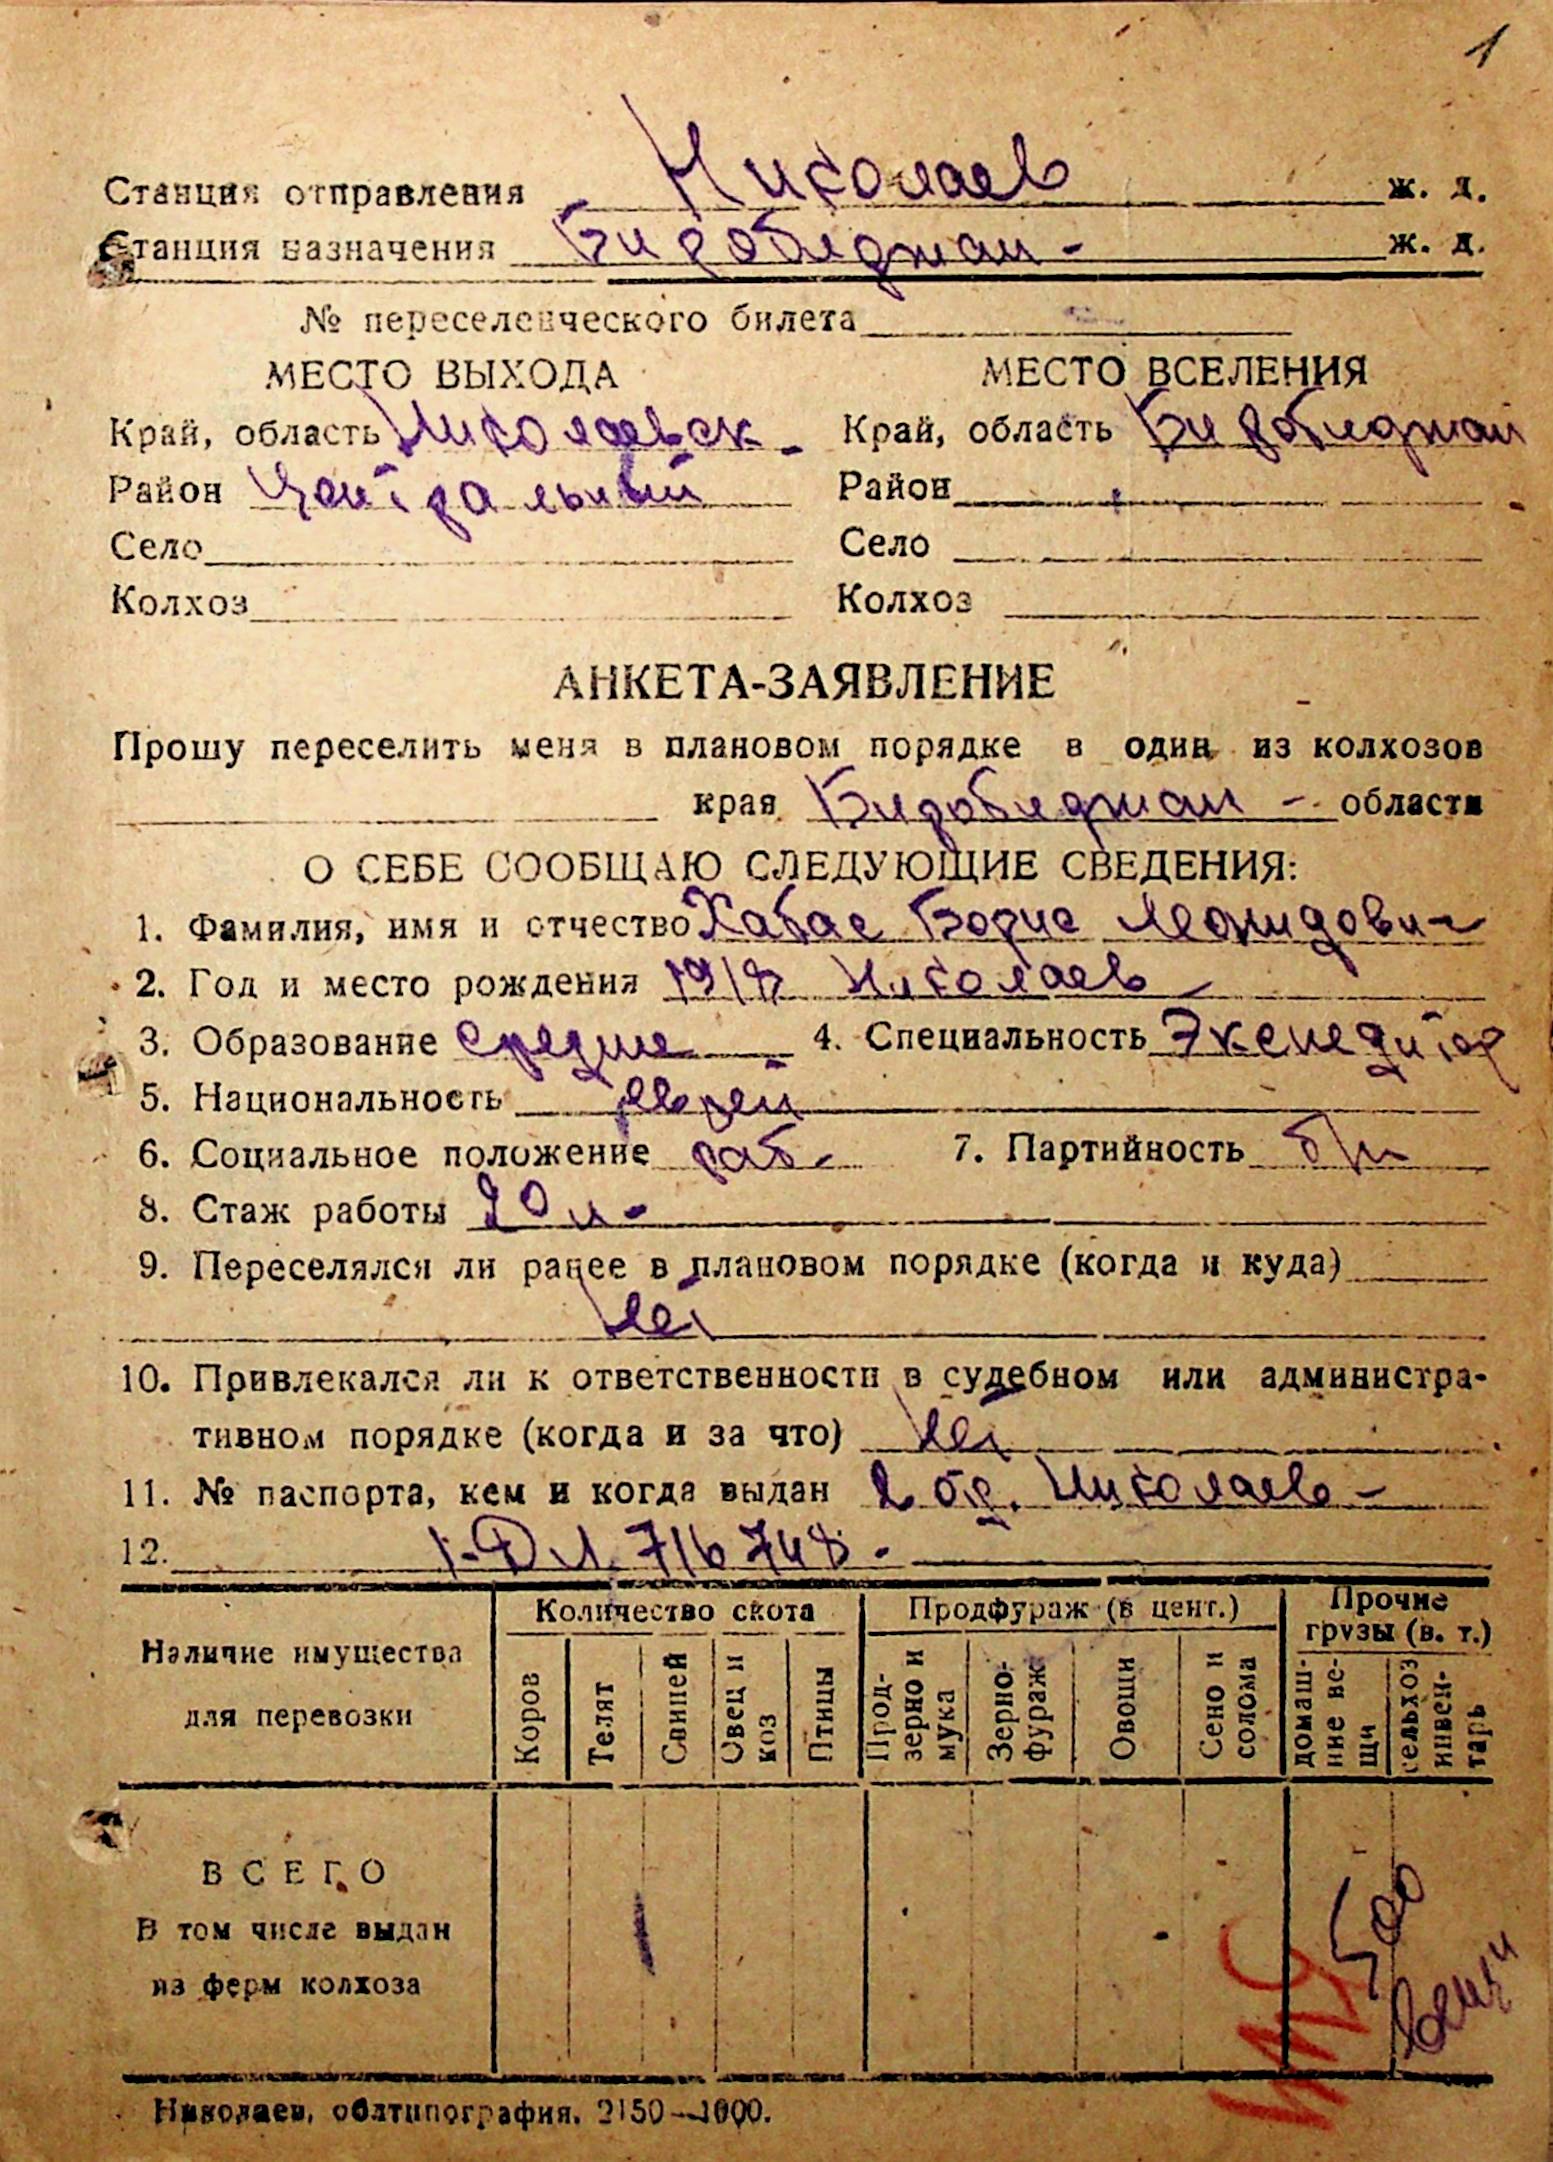 1
Станция отправления Николаев ж. д.
Станция назначения Биробиджан - ж. д.
№ переселенческого билета
МЕСТО ВЫХОДА МЕСТО ВСЕЛЕНИЯ
Край, область Николаевск - Край, область Биробиджан
Район Центральный Район
Село Село
Колхоз Колхоз
АНКЕТА-ЗАЯВЛЕНИЕ
Прошу переселить меня в плановом порядке в один из колхозов
края Биробиджан - области
О СЕБЕ СООБЩАЮ СЛЕДУЮЩИЕ СВЕДЕНИЯ:
1. Фамилия, имя и отчество Хабас Борис Леонидович
2. Год и место рождения 1918 Николаев
3. Образование средне 4. Специальность Экспедитор
5. Национальность еврей
6. Социальное положение раб. 7. Партийность б/п
8. Стаж работы 20 л.
9. Переселялся ли ранее в плановом порядке (когда и куда)
Нет
10. Привлекался ли к ответственности в судебном или администра-
тивном порядке (когда и за что) Нет
11. № паспорта, кем и когда выдан 2 от. Николаев -
12. 716748.
Наличие имущества для перевозки
Количество скота Продфураж (в цент.) Прочие грузы (в. т.)
Коров Телят Свиней Овец и коз Птицы Прод-зерно и мука Зерно-фураж Овощи Сено и солома домаш-ние ве-щи сельхоз инвен-тарь
ВСЕГО
В том числе выдан
из ферм колхоза
500
вещи
Николаев, облтипография. 2150—1000.